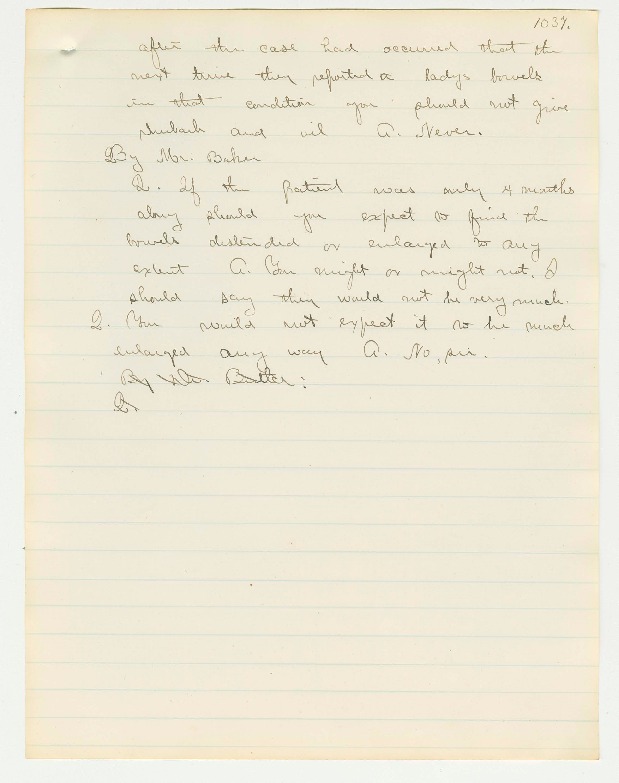 1037.
after the case had occurred that the
next time they reported a ladys bowels
in that condition you should not give
rhubarb and oil A. Never.
By Mr. Baker
Q. If the patient was only 4 months
along should you expect to find the
bowels distended or enlarged to any
extent A. You might or might not. I
should say they would not be very much.
Q. You would not expect it to be much
enlarged any way A. No, sir.
By Mr. :
Q.